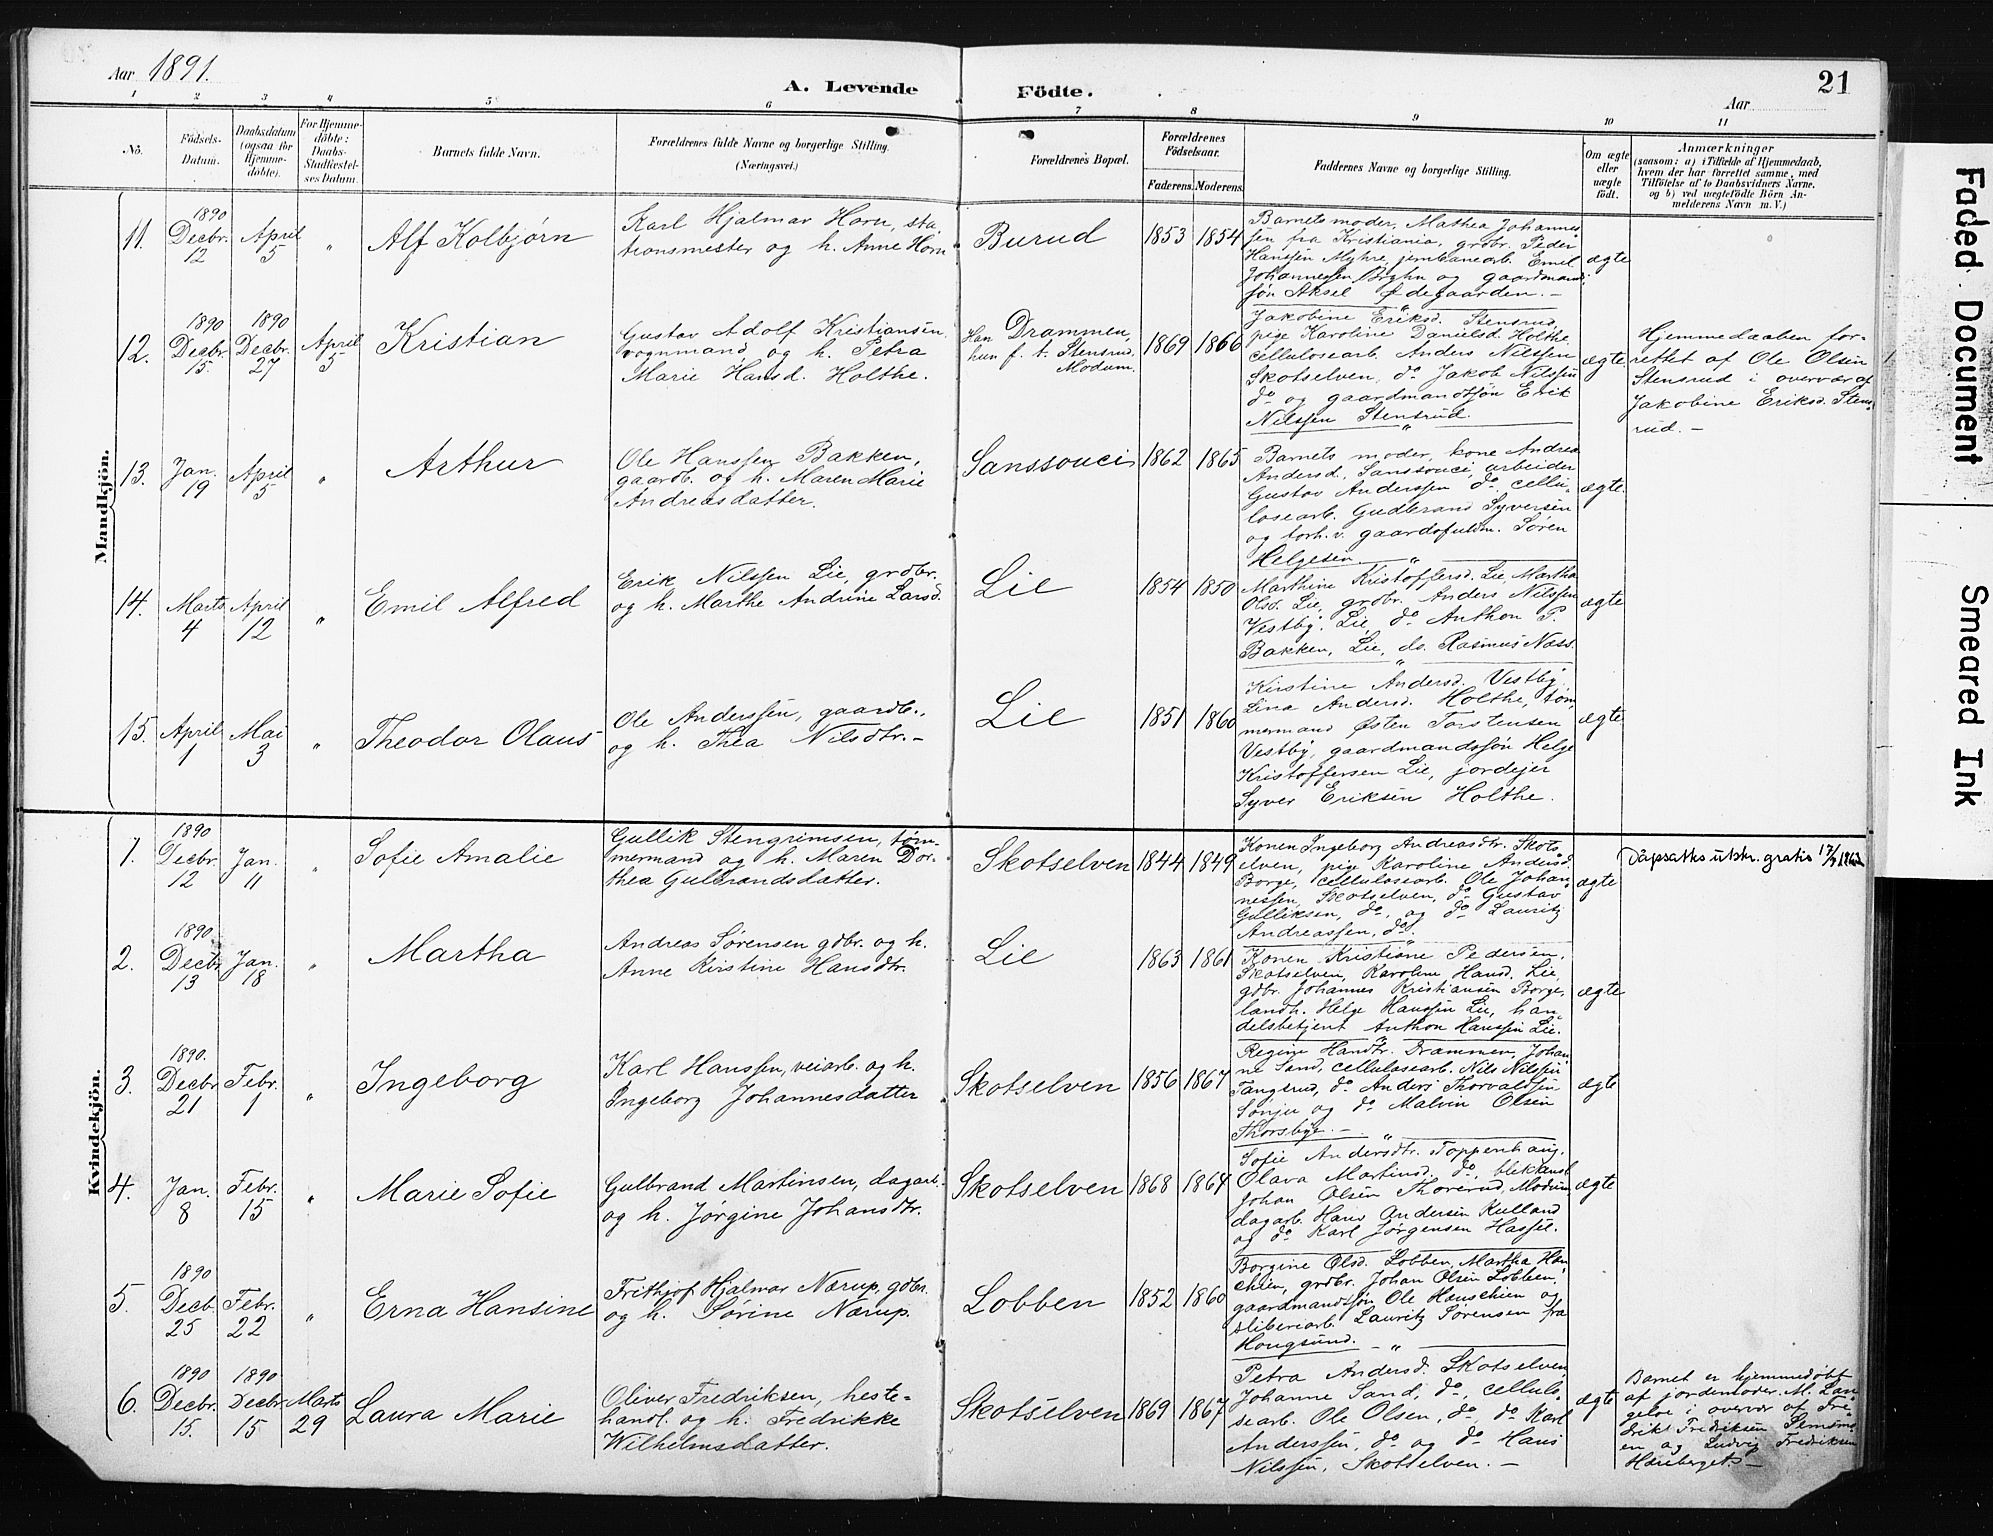 Aar 1891.
A. Levende Födte.
21
Aar
1 2 3 4 5 6 7 8 9 10 11
No.
Födsels-
Datum.
Daabsdatum
(ogsaa for
Hjemme-
döbte).
For Hjemme-
döbte:
Daabs-
Stadfæstel-
ses Datum.
Barnets fulde Navn.
Forældrenes fulde Navne og borgerlige Stilling.
(Næringsvei.)
Forældrenes Bopæl.
Forældrenes
Födselsaar.
Faderens. Moderens.
Faddernes Navne og borgerlige Stilling.
Om ægte
eller
uægte
født.
Anmærkninger
(saasom: a) i Tilfælde af Hjemmedaab,
hvem der har forrettet samme, med
Tilföielse af to Daabsvidners Navne,
og b) ved uægtefödte Börn An-
melderens Navn m. V.)
Mandkjön.
11.
1890
Decbr.
12
April
5
"
Alf Kolbjørn
Karl Hjalmar Horn, sta-
tionsmester og h. Anne Horn
Burud
1853 1854
Barnets moder, Mathea Johannes-
sen fra Kristiania, grdbr. Peder
Hanssen Myhre, jernbanearb. Emil
Johannessen Bryhn og gaardmands-
søn Aksel Ødegaarden. -
ægte
12.
1890
Decbr.
15
1890
Decbr.
27
April
5
Kristian
Gustav Adolf Kristiansen
vognmand og h. Petra
Marie Hansd. Holthe.
Han Drammen,
hun f. t. Stensrud
Modum.
1869 1866
Jakobine Eriksd. Stensrud
pige Karoline Danielsd. Holthe,
cellulosearb. Anders Nilssen
Skotselven, do Jakob Nilssen
do og gaardmandssøn Erik
Nilssen Stensrud.
ægte
Hjemmedaaben for-
rettet af Ole Olsen
Stensrud i overvær af
Jakobine Eriksd. Stens-
rud. -
13.
Jan.
19
April
5
"
Arthur
Ole Hanssen Bakken,
gaardb. og h. Maren Marie
Andreasdatter.
Sanssouci
1862 1865
Barnets moder, kone Andrea
Andersd. Sanssouci, arbeider
Gustav Anderssen do, cellu-
losearb. Gudbrand Syversen
og forh.v. gaardsfuldm. Søren
Helgesen
ægte.
14.
Marts
4
April
12
"
Emil Alfred
Erik Nilssen Lie, grdbr.
og h. Marthe Andrine Larsd.
Lie
1854 1850
Marthine Kristoffersd. Lie, Martha
Olsd. Lie, grdbr. Anders Nilssen
Vestby, Lie, do Anthon P.
Bakken, Lie, do. Rasmus Næss.
ægte
15.
April
1
Mai
3
"
Theodor Olaus
Ole Anderssen, gaardb.,
og h. Thea Nilsdtr. -
Lie
1851 1860
Kirstine Andersd. Vestby,
Lina Andersd. Holthe, tøm-
mermand Østen Torstensen
Vestby, gaardmandssøn Helge
Kristoffersen Lie, jordejer
Syver Eriksen Holthe.
ægte
Kvindekjön.
1.
1890
Decbr.
12
Jan.
11
"
Sofie Amalie
Gullik Stengrimsen, tøm-
mermand og h. Maren Dor-
thea Gulbrandsdatter.
Skotselven
1844 1849
Konen Ingeborg Andreasdtr. Skots-
elven, pige Karoline Andersd.
Borge, cellulosearb. Ole Johan-
nessen, Skotselven, do Gustav
Gulliksen, do, og do Lauritz
Andreassen, do.
ægte
Dåpsattks utskr. gratis
2.
1890
Decbr.
13
Jan.
18
"
Martha
Andreas Sørensen gdbr. og h.
Anne Kirstine Hansdtr.
Lie
1863 1861
Konen Kristiane Pedersen,
Skotselven, Karoline Hansd. Lie,
gdbr. Johannes Kristiansen Borge,
landh. Helge Hanssen Lie, han-
delsbetjent Anthon Hanssen Lie.
ægte
3.
1890.
Decbr.
21
Febr.
1
"
Ingeborg
Karl Hanssen, veiarb. og h.
Ingeborg Johannesdatter
Skotselven
1856 1867
Regine Handtr. Drammen, Johan-
ne Sand, cellulosearb. Nils Nilssen
Tangerud, do Anders Thorvaldsen
Sønju og do Malvin Olsen
Thorsbye. -
ægte
4.
Jan.
8
Febr.
15
"
Marie Sofie
Gulbrand Martinsen, dagarb.
og h. Jørgine Johansdtr.
Skotselven
1868 1867
Sofie Andersdtr. Toppenhaug,
Olava Martinsd. do, blikkensl.
Johan Olsen Thorerud, Modum,
dagarb. Hans Andersen Kulland
og do Karl Jørgensen Hassel.
ægte
5.
1890
Decb.
25
Febr.
22
"
Erna Hansine
Frithjof Hjalmar Nærup, gdbr.
og h. Sørine Nærup.
Lobben
1852 1860
Borgine Olsd. Lobben, Martha Han-
chien, grdbr. Johan Olsen Lobben,
gaardmandssøn Ole Hanschien og
sliberiarb. Lauritz Sørensen fra
Hougsund.
6.
1890
Decbr.
15.
1890
Decbr.
15
Marts
29
Laura Marie
Oliver Fredriksen, heste-
handl. og h. Fredrikke
Wilhelmsdatter.
Skotselven
1869 1867
Petra Andersd. Skotselven
Johanne Sand, do, cellulo-
searb. Ole Olsen, do, do Karl
Anderssen, do og do Hans
Nilssen, Skotselven. -
ægte
Barnet er hjemmedøbt
af jordemoder M. Lan-
geloe i overvær af Fre-
drik Fredriksen
en og Ludvig Fredriksen
Faded Document
Smeared Ink